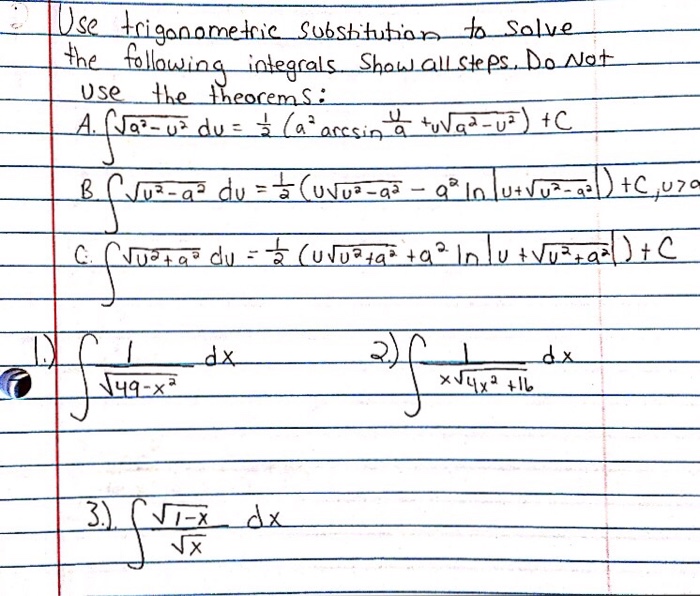 Use trigonometric substitution to solve
the following integrals. Show all steps. Do Not
use the theorems:
A. ∫√(a²-u²) du = 1/2 (a² arcsin u/a + u√(a²-u²)) + C
B. ∫√(u²-a²) du = 1/2 (u√(u²-a²) - a² ln|u+√(u²-a²)|) + C, u>a
C. ∫√(u²+a²) du = 1/2 (u√(u²+a²) + a² ln|u+√(u²+a²)|) + C
1.) ∫ 1/√(49-x²) dx 2.) ∫ 1/(x√(4x²+16)) dx
3.) ∫ √(1-x)/√x dx